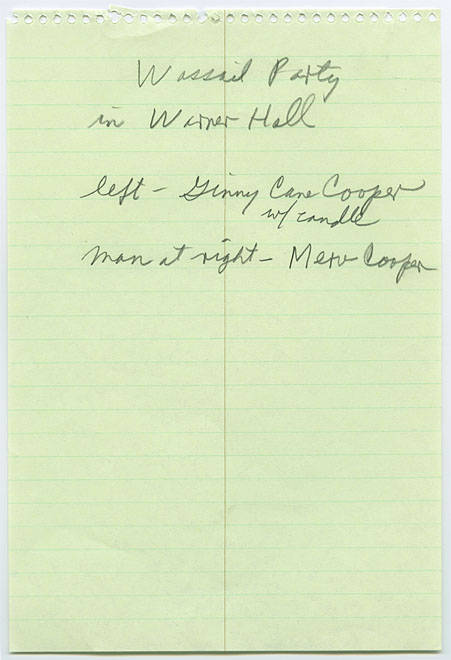 Wassail Party
in Warner Hall
left - Ginny Cane Cooper
w/ candle
man at right - Merv Cooper